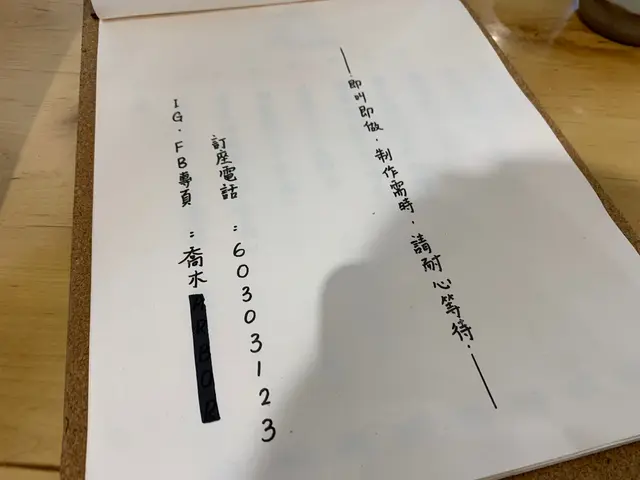 ——即叫即做．制作需時，請耐心等待．——
訂座電話：60303123
IG．FB專頁：喬木